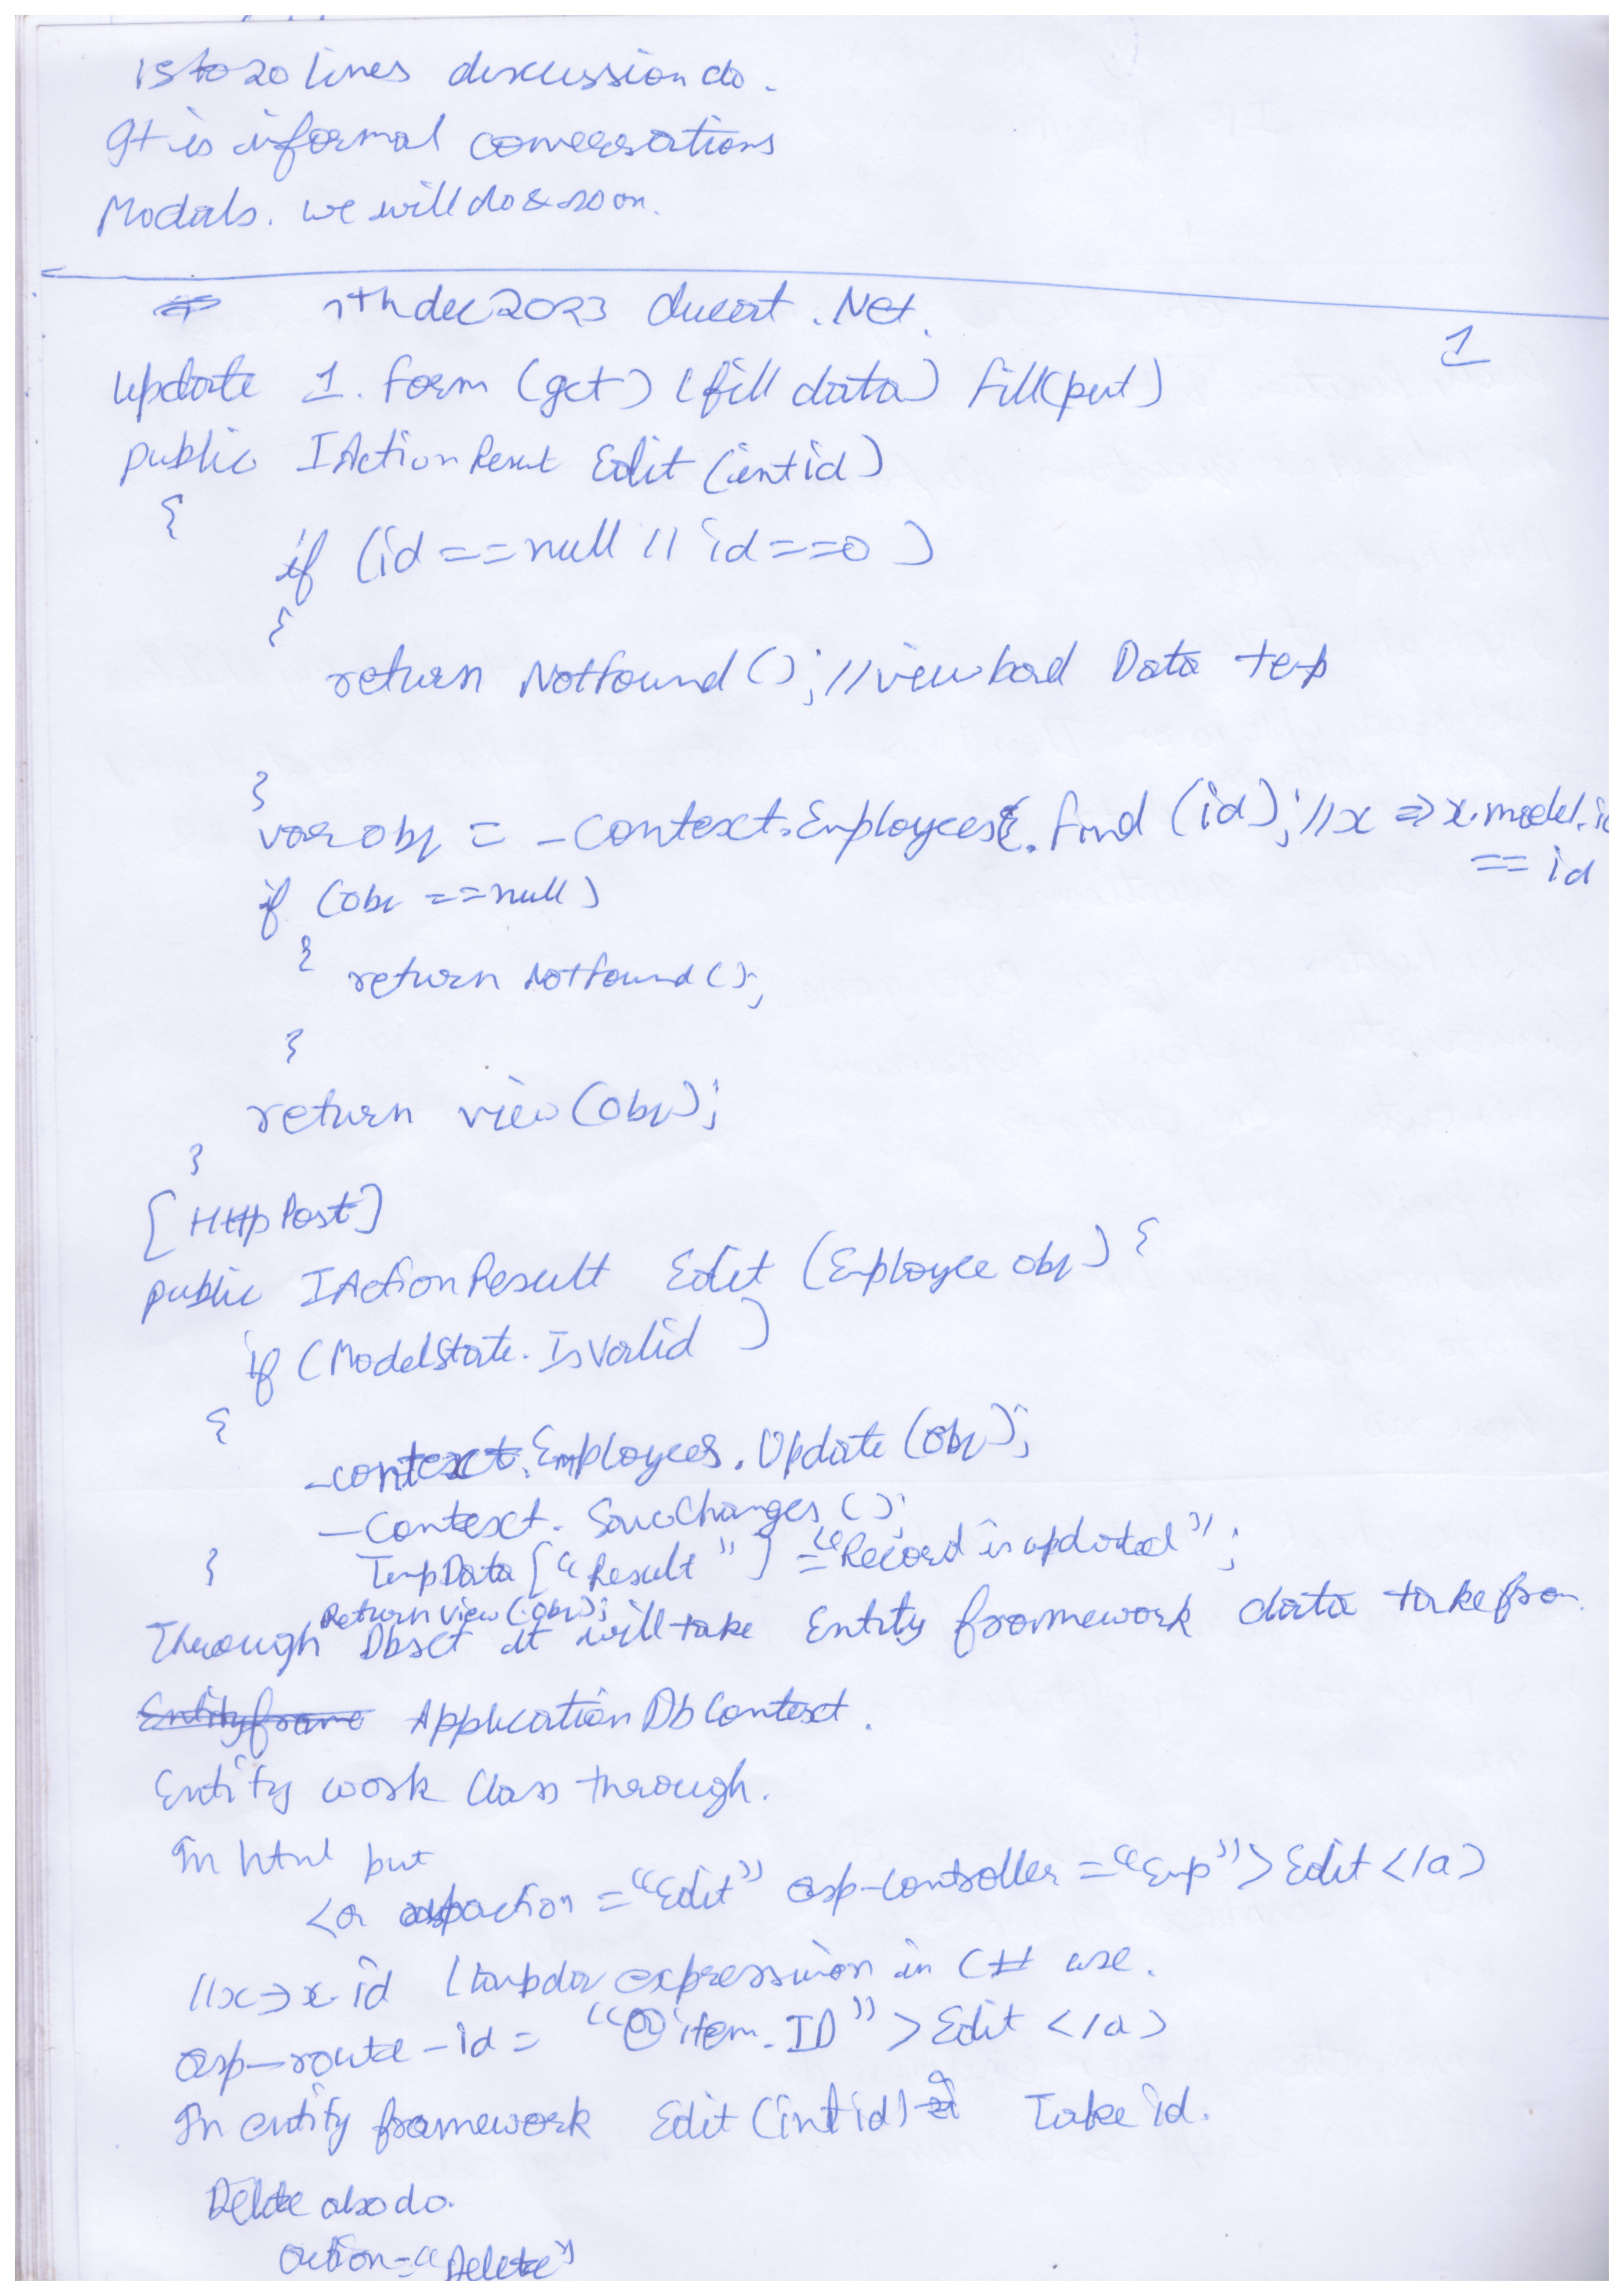 15 to 20 lines discussion do.
It is informal conversations
Modals. we will do & so on.
7th dec 2023 ducat .Net.
1
update 1. form (get) (fill data) fill(put)
public IActionResut Edit (int id)
{
if (id == null || id == 0 )
{
return Notfound(); //view bad Data temp
}
var obj = _Context.Employees. find (id); //x => x.model.id
== id
if (obj == null)
{ return Notfound();
}
return view (obj);
}
[HttpPost]
public IActionResult Edit (Employee obj) {
if (ModelState. IsValid )
{
_context.Employees. Update (obj);
_Context. SaveChanges ();
} TempData ["Result"] = "Record is updated";
Return view (obj);
Through Dbset it will take Entity framework data take from.
Entityframe ApplicationDbContext.
Entity work Class through.
In html put
<a aspaction = "Edit" asp-controller = "Emp"> Edit </a>
//x=>x.id lambda expression in C# use.
asp-route-id = "@item.ID"> Edit </a>
In entity framework Edit (int id) Take id.
Delete also do.
action = "Delete"